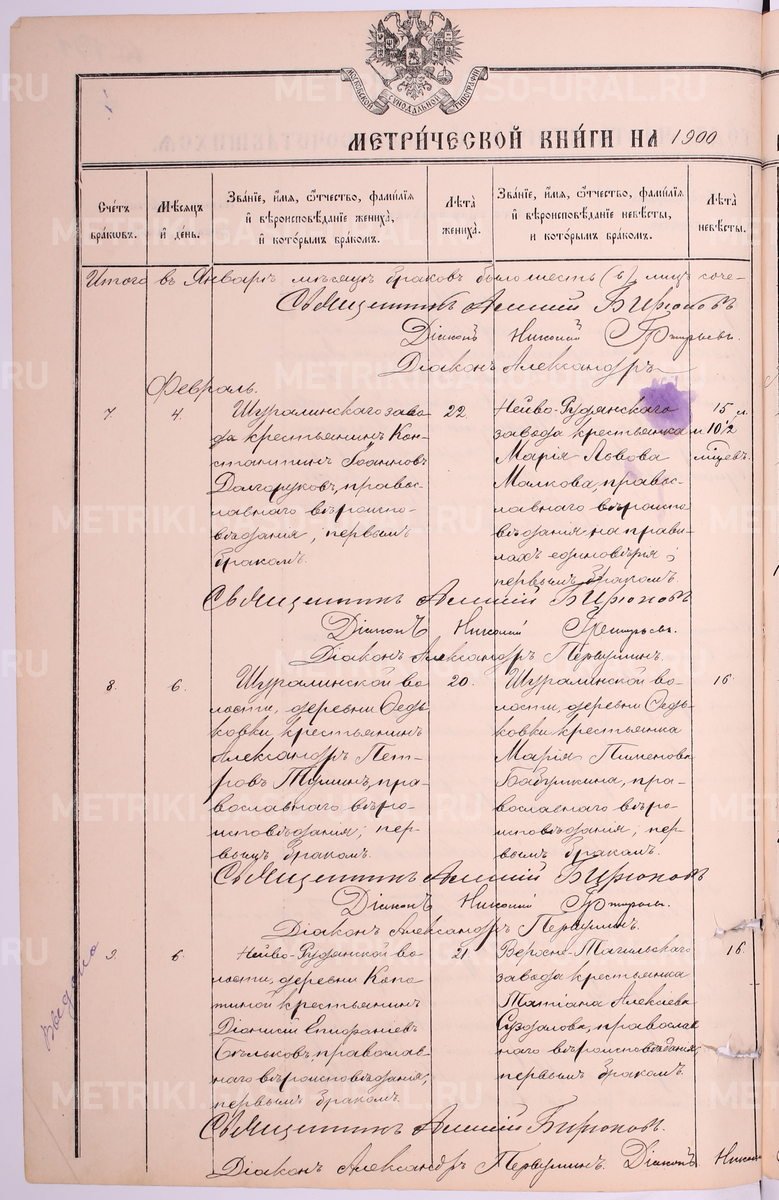 МОСКОВСКОЙ СѴНОДАЛЬНОЙ ТИПОГРАФІИ
МЕТРИ́ЧЕСКОЙ КНИ́ГИ НА 1900
Сче́тъ бра́ковъ.
Мѣ́сяцъ и҆ де́нь.
Зва́нїе, и҆́мѧ, ѻ҆́тчество, фамѝлїѧ и҆ вѣроисповѣ́данїе жениха̀, и҆ кото́рымъ бра́комъ.
Лѣ́та жениха̀.
Зва́нїе, и҆́мѧ, ѻ҆́тчество, фамѝлїѧ и҆ вѣроисповѣ́данїе невѣ́сты, и҆ кото́рымъ бра́комъ.
Лѣ́та невѣ́сты.
Итого въ Январѣ мѣсяцѣ браковъ было шесть (6), лицъ соче-
Священникъ Алексій Бирюковъ
Діаконъ Николай
Діаконъ Александръ
Февраль.
7. 4.
Шуралинскаго заво-
да крестьянинъ Кон-
стантинъ Іоанновъ
Долгоруковъ, правос-
лавнаго вѣроиспо-
вѣданія, первымъ
бракомъ.
22
Нейво-Рудянскаго
завода крестьянка
Марія Львова
Малкова, правос-
лавнаго вѣроиспо-
вѣданія на прави-
лахъ единовѣрія;
первымъ бракомъ.
15 л.
и 10 1/2
мѣсцевъ.
Священникъ Алексій Бирюковъ
Діаконъ Николай
Діаконъ Александръ Первушинъ.
8. 6.
Шуралинской во-
лости, деревни Ѳедь-
ковки крестьянинъ
Александръ Пет-
ровъ Тупицынъ, пра-
вославнаго вѣро-
исповѣданія; пер-
вымъ бракомъ.
20.
Шуралинской во-
лости, деревни Ѳедь-
ковки крестьянка
Марія Пименова
Бабушкина, пра-
вославнаго вѣро-
исповѣданія; пер-
вымъ бракомъ.
16
Священникъ Алексій Бирюковъ
Діаконъ Николай
Діаконъ Александръ Первушинъ.
Выдано
9. 6.
Нейво-Рудянской во-
лости, деревни Копо-
тиной крестьянинъ
Діонисій Епифаніевъ
Бѣльковъ, православ-
наго вѣроисповѣданія,
первымъ бракомъ.
21
Верхне-Тагильскаго
завода крестьянка
Татіана Алексѣева
Суздалова, православ-
наго вѣроисповѣданія,
первымъ бракомъ.
16
Священникъ Алексій Бирюковъ.
Діаконъ Александръ Первушинъ. Діаконъ Никол
METRIKI.GASO-URAL.RU